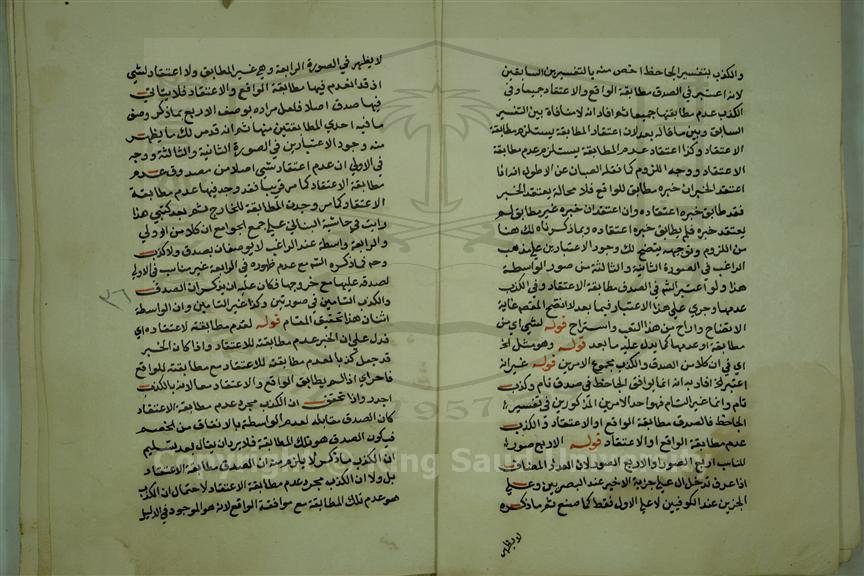 والكذب بتفسير الجاحظ اخص منه بالتفسيرين السابقين
لانه اعتبر في الصدق مطابقة الواقع والاعتقاد جميعا وفي
الكذب عدم مطابقتهما جميعا ثم افاد انه لا منافاة بين التفسير
السابق وبين ما قاله بعد لان اعتقاد المطابقة يستلزم مطابقة
الاعتقاد وكذا اعتقاد عدم المطابقة يستلزم عدم مطابقة
الاعتقاد ووجه اللزوم كما نقله الصبان عن الاطول انه اذا
اعتقد الخبر ان خبره مطابق للواقع فلا محالة يعتقد الخبر
فقد طابق خبره اعتقاده وان اعتقد ان خبره غير مطابق لم
يعتقد خبره فلم يطابق خبره اعتقاده وبما ذكرناه لك هنا
من اللزوم وتوجيهه يتضح لك وجود الاعتبارين على مذهب
الراغب في الصورة الثانية والثالثة من صور الواسطة
هذا ولو اعتبر الشم في الصدق مطابقة الاعتقاد وفي الكذب
عدمها وجري على هذا الاعتبار فيما بعد لاتضح المقص غاية
الاتضاح واراح من هذا التعب واستراح قوله لشي اي من
مطابقة او عدمها كما يدل عليه ما بعد قوله وهو مثل الخ
اي في ان كلا من الصدق والكذب مجموع الامرين قوله غير انه
اعتبر الخ افاد به انه انما يوافق الجاحظ في صدق تام وكذب
تام واما غير التام فهو احد الامرين المذكورين في تفسير
الجاحظ فالصدق مطابقة الواقع او الاعتقاد والكذب
عدم مطابقة الواقع او الاعتقاد قوله الاربع صور
للناسب اربع الصور او الاربع الصور لان العدد المضاف
اذا عرف تدخل ال على جزيه الاخير عند البصريين وعلى
الجزين عند الكوفيين لا على الاول فقط كما صنع ثم ما ذكره
لا يظهر
لا يظهر في الصورة الرابعة وهي غير المطابق ولا اعتقاد لشي
اذ قد انعدم فيها مطابقة الواقع والاعتقاد فلا يتاتي
فيها صدق اصلا فلعل مراده بوصف الاربع بما ذكر وصف
ما فيه احدي المطابقتين منها ثم انه قد مر لك ما يظهر
منه وجود الاعتبارين في الصورة الثانية والثالثة ووجه
في الاولي ان عدم اعتقاد لشي اصلا من مصدوق عدم
مطابقة الاعتقاد كما مر قريبا فقد وجد فيها عدم مطابقة
الاعتقاد كما وجدت المطابقة للخارج ثم بعد كتبي هذا
رايت في حاشية البناني علي جمع الجوامع ان كلا من الاولي
والرابعة واسطة عند الراغب لا يوصفان بصدق ولا كذب
وحم فما ذكره الشم مع عدم ظهوره في الرابعة غير مناسب في الاولي
لصدقه عليها مع خروجها فكان عليه ان يذكر ان الصدق
والكذب التامين في صورتين وكذا غير التامين وان الواسطة
اثنان هذا تحقيق المقام قوله لعدم مطابقته لاعتقاده اي
فدل علي ان الخبر عدم مطابقته للاعتقاد واذا كان الخبر
قد جعل كذبا لعدم مطابقته للاعتقاد مع مطابقته للواقع
فاحراي اذا لم يطابق الواقع والاعتقاد معا لانه بالكذب
اجدر واذا تحقق ان الكذب مجرد عدم مطابقة الاعتقاد
كان الصدق مقابله لعدم الواسطة بالاتفاق من الخصم
فيكون الصدق هو تلك المطابقة فلا يرد ان يقال بعد تسليم
ان الكذب ما ذكر لا يلزم منه ان الصدق مطابقة الاعتقاد
بل ولا ان الكذب مجرد عدم مطابقة الاعتقاد لاحتمال ان الكذب
هو عدم تلك المطابقة مع موافقة الواقع لانه هو الموجود في الدليل
٢٦
Copyright © King Saud University
1957